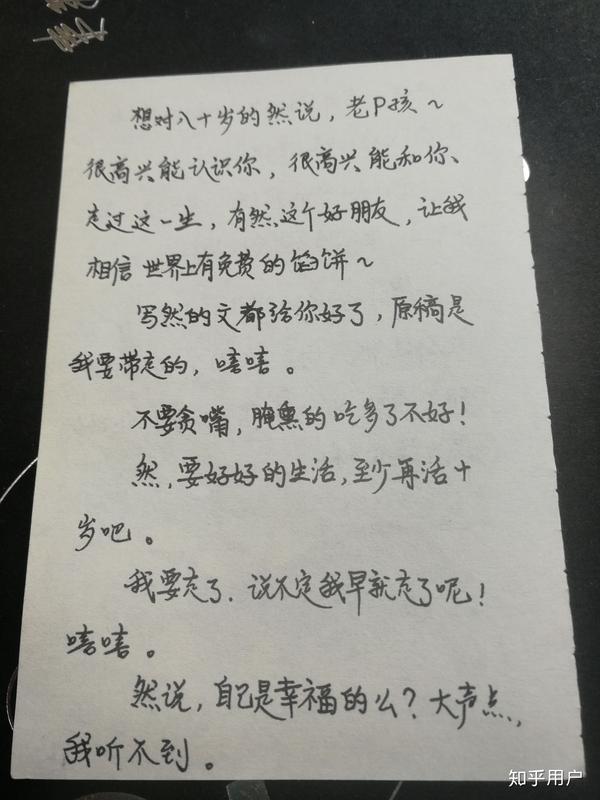 想对八十岁的然说，老P孩~
很高兴能认识你，很高兴能和你、
走过这一生，有然这个好朋友，让我
相信世界上有免费的馅饼~
写然的文都给你好了，原稿是
我要带走的，嘻嘻。
不要贪嘴，腌熏的吃多了不好！
然，要好好的生活，至少再活十
岁吧。
我要走了．说不定我早就走了呢！
嘻嘻。
然说，自己是幸福的么？大声点，
我听不到。
知乎用户